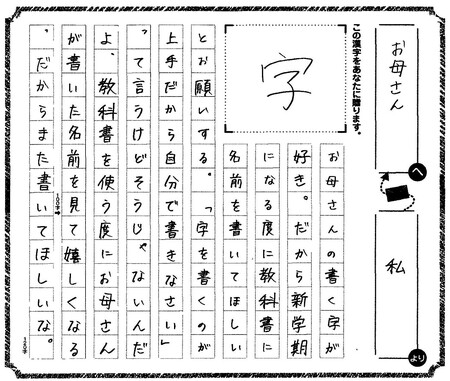 お母さん
へ
私
より
この漢字をあなたに贈ります。
字
お母さんの書く字が
好き。だから新学期
になる度に教科書に
名前を書いてほしい
とお願いする。「字を書くのが
上手だから自分で書きなさい」
って言うけどそうじゃないんだ
よ、教科書を使う度にお母さん
が書いた名前を見て嬉しくなる
100字
。だからまた書いてほしいな。
120字